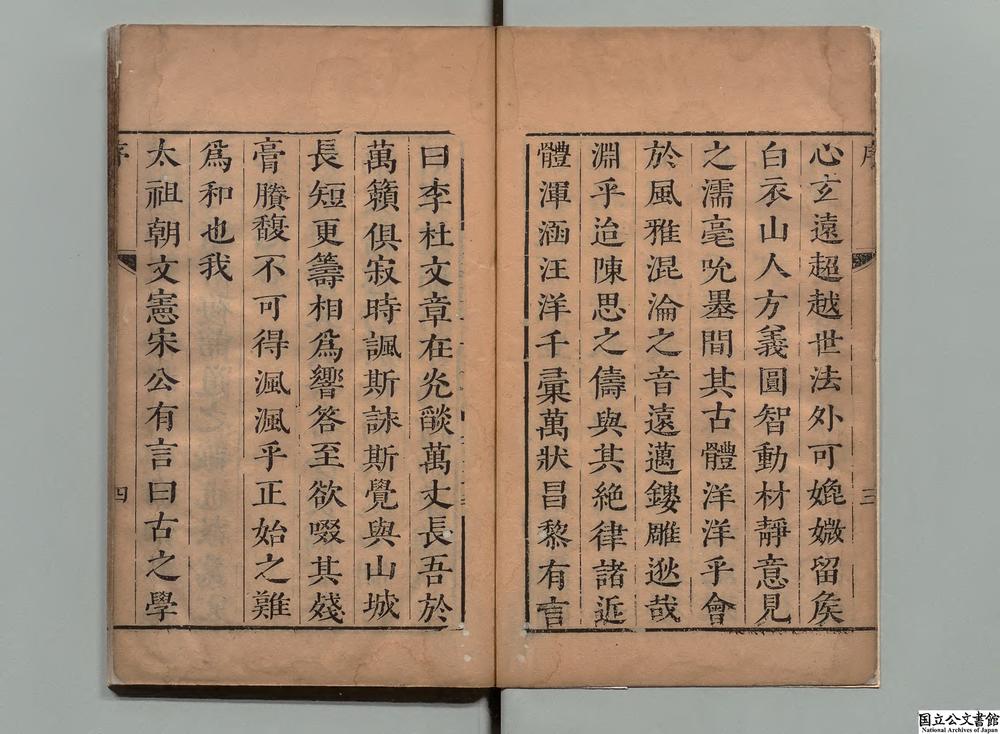 心玄遠超越世法外可媲媺留矦
白衣山人方義圓智動材靜意見
之濡毫吮墨間其古體洋洋乎會
於風雅混淪之音遠邁鏤雕逖哉
淵乎迨陳思之儔與其絶律諸近
體渾涵汪洋千彚萬狀昌黎有言
序
三
曰李杜文章在光燄萬丈長吾於
萬籟俱寂時諷斯誄斯覺與山城
長短更籌相爲響答至欲啜其殘
膏賸馥不可得渢渢乎正始之難
爲和也我
太祖朝文憲宋公有言曰古之學
序
四
国立公文書館
National Archives of Japan